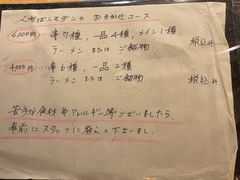 くしばしモダンの おまかせコース
6,000円… 串7種、一品4種、メイン1種、
ラーメン または ご飯物 税込み
4,000円… 串6種、一品2種
ラーメン または ご飯物 税込み
苦手な食材やアレルギー等ございましたら
事前にスタッフに教えて下さいませ。